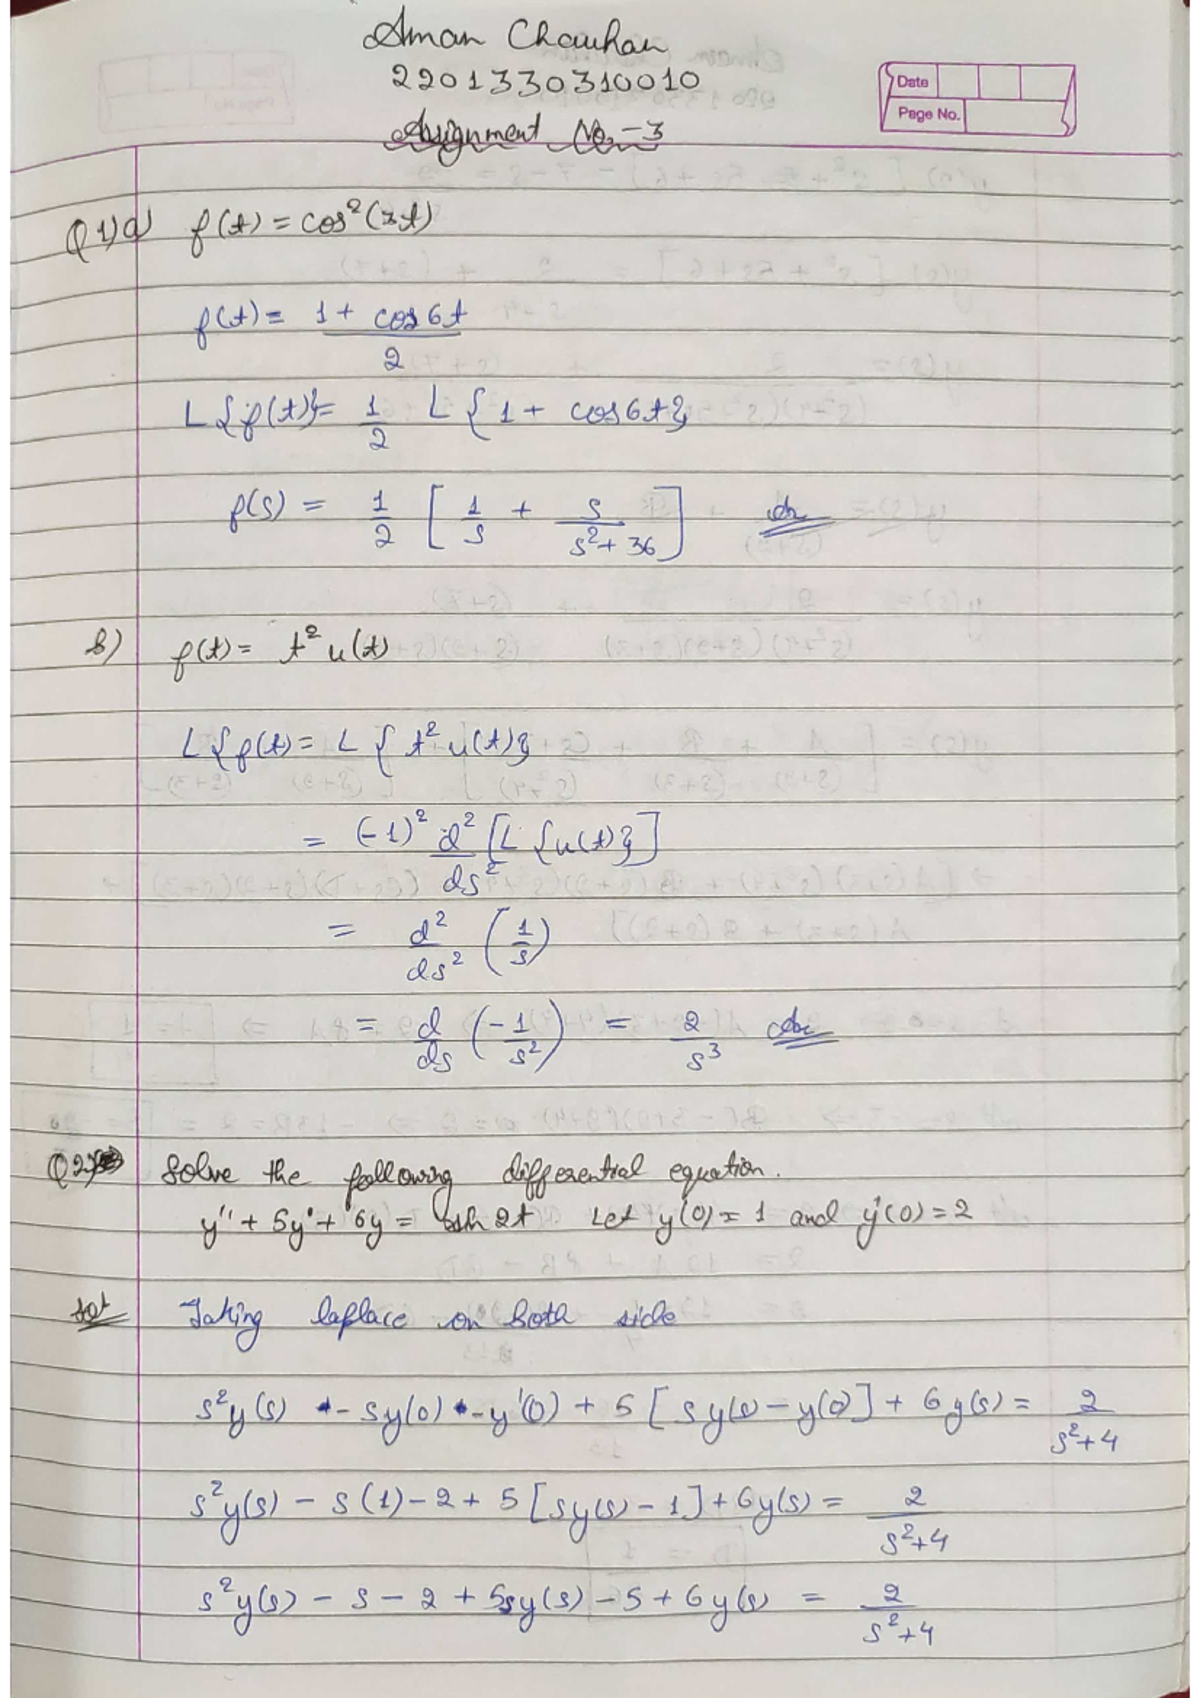 Aman Chauhan
2201330310010
Assignment No.-3
Date
Page No.
Q1)a) f(t) = cos²(3t)
f(t) = (1 + cos6t)/2
L{f(t)} = 1/2 L{1 + cos6t}
f(s) = 1/2 [1/s + s/(s²+36)] Ans
b) f(t) = t² u(t)
L{f(t) = L{t² u(t)}
= (-1)² d²/ds² [L{u(t)}]
= d²/ds² (1/s)
= d/ds (-1/s²) = 2/s³ Ans
Q2) Solve the following differential equation.
y'' + 5y' + 6y = sin 2t Let y(0) = 1 and y'(0) = 2
Sol Taking laplace on both side
s²y(s) - sy(0) - y'(0) + 5[sy(s) - y(0)] + 6y(s) = 2/(s²+4)
s²y(s) - s(1) - 2 + 5[sy(s) - 1] + 6y(s) = 2/(s²+4)
s²y(s) - s - 2 + 5sy(s) - 5 + 6y(s) = 2/(s²+4)